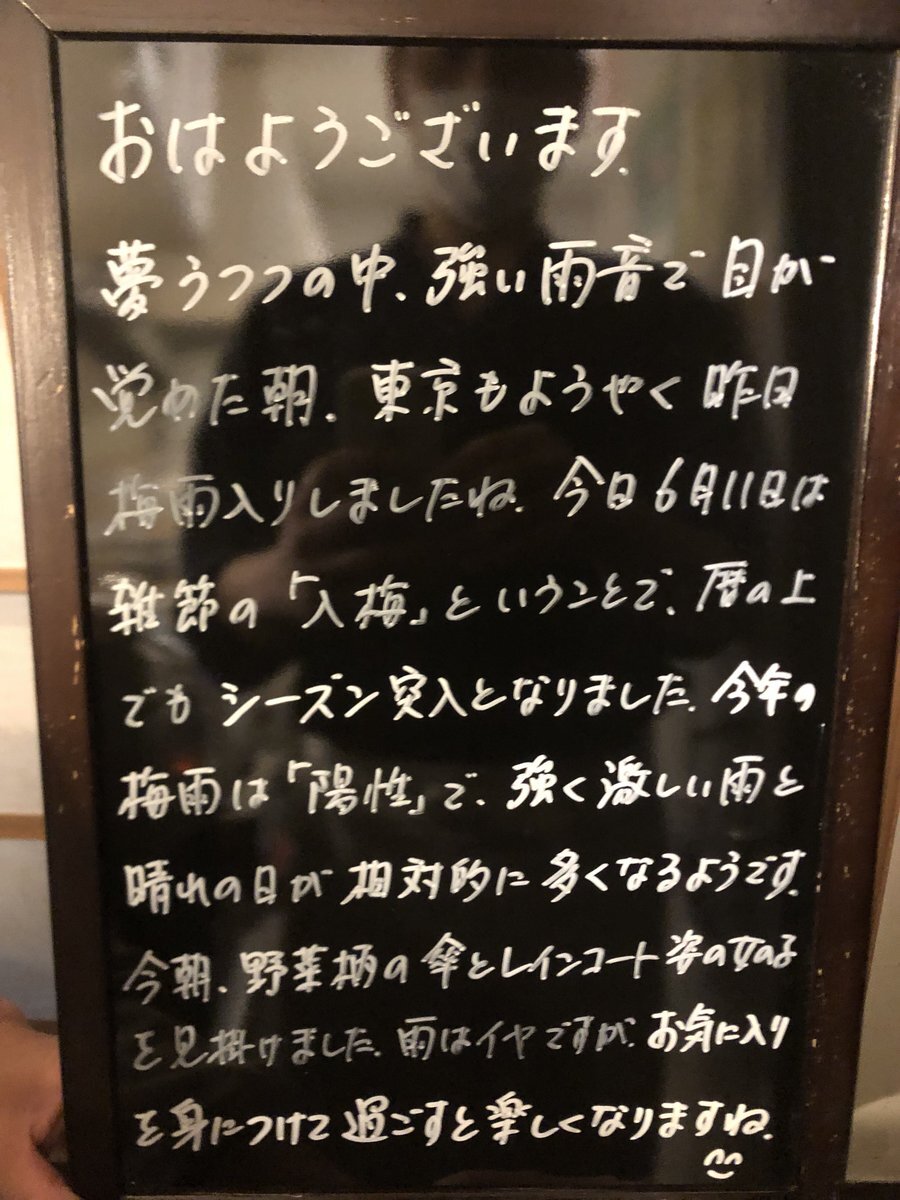 おはようございます.
夢うつつの中、強い雨音で目が
覚めた朝、東京もようやく昨日
梅雨入りしましたね。今日6月11日は
雑節の「入梅」ということで、暦の上
でもシーズン突入となりました。今年の
梅雨は「陽性」で、強く激しい雨と
晴れの日が相対的に多くなるようです。
今朝、野菜柄の傘とレインコート姿の女の子
を見掛けました。雨はイヤですが、お気に入り
を身につけて過ごすと楽しくなりますね。